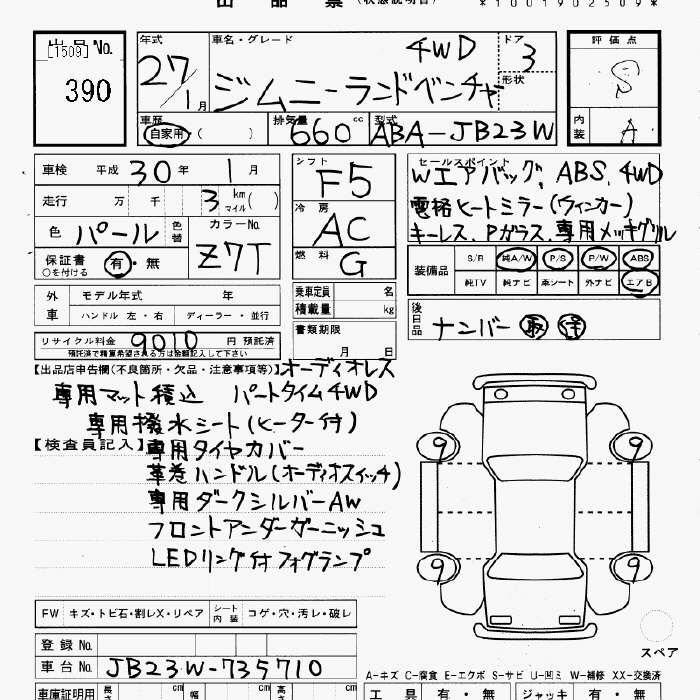 出品票 (状態説明書)
*1001902509*
出品No.
[1509]
390
年式
27/1月
車名・グレード
4WD
ジムニーランドベンチャー
ドア
3
形状
評価点
S
内装
A
車歴
自家用・( )
排気量
660 cc
型式
ABA-JB23W
車検 平成 30年 1月
走行 万 千 3 km マイル( )
色 パール 色替
カラーNo.
Z7T
保証書 有・無
○を付ける
シフト
F5
冷房
AC
燃料
G
セールスポイント
Wエアバッグ、ABS、4WD
電格ヒートミラー(ウィンカー)
キーレス、Pガラス、専用メッキグリル
装備品
S/R 純A/W P/S P/W ABS
純TV 純ナビ 革シート 外ナビ エアB
外車
モデル年式 年
ハンドル 左・右 ディーラー・並行
乗車定員 名
積載量 kg
リサイクル料金 9010 円 預託済
預託済で精算希望される方は金額記入して下さい
書類期限
月 日
後日品
ナンバー 取 注
【出品店申告欄(不良箇所・欠品・注意事項等)】オーディオレス
専用マット積込 パートタイム4WD
専用撥水シート(ヒーター付)
【検査員記入】専用タイヤカバー
革巻ハンドル(オーディオスイッチ)
専用ダークシルバーAW
フロントアンダーガーニッシュ
LEDリング付フォグランプ
9
9
9
9
スペア
FW キズ・トビ石・割レX・リペア シート内装 コゲ・穴・汚レ・破レ
登録No.
車台No. JB23W-735710
A-キズ C-腐食 E-エクボ S-サビ U-凹ミ W-補修 XX-交換済
車庫証明用 長さ cm 幅 cm 高さ cm
工具 有・無 ジャッキ 有・無